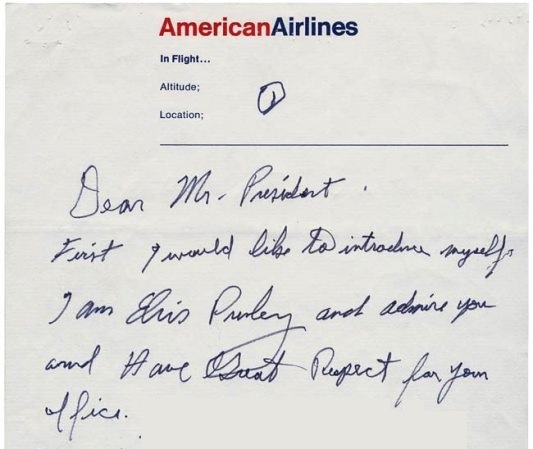 AmericanAirlines
In Flight...
Altitude;
Location;
1
Dear Mr. President.
First I would like to introduce myself.
I am Elvis Presley and admire you
and Have Great Respect for your
office.